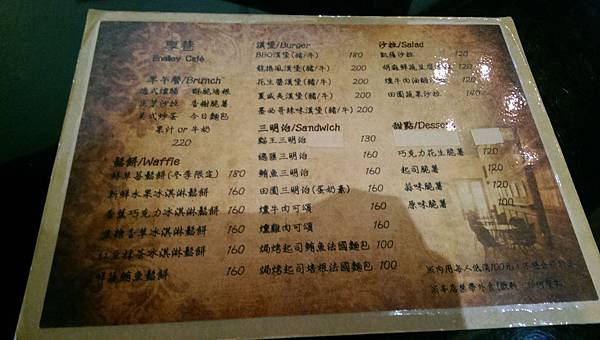 Enalloy Café
早午餐/Brunch
德式燻腸 酥脆培根
蔬菜沙拉 香榭脆薯
美式炒蛋 今日麵包
果汁 or 牛奶
220
鬆餅/Waffle
鮮草莓鬆餅(冬季限定) 180
新鮮水果冰淇淋鬆餅 160
香蕉巧克力冰淇淋鬆餅 160
焦糖香蕉冰淇淋鬆餅 160
紅豆抹茶冰淇淋鬆餅 160
鮮蔬鮪魚鬆餅 160
漢堡/Burger
BBQ漢堡(豬/牛) 180
龍捲風漢堡(豬/牛) 200
花生醬漢堡(豬/牛) 200
夏威夷漢堡(豬/牛) 200
墨西哥辣味漢堡(豬/牛) 200
三明治/Sandwich
點王三明治 130
總匯三明治 160
鮪魚三明治 160
田園三明治(蛋奶素) 160
燻牛肉可頌 160
燻雞肉可頌 160
焗烤起司鮪魚法國麵包 100
焗烤起司培根法國麵包 100
沙拉/Salad
凱薩沙拉 120
胡麻鮮蔬豆腐 120
燻牛肉油醋 120
田園蔬果沙拉 140
甜點/Dessert
巧克力花生脆薯 120
起司脆薯 120
蒜味脆薯 120
原味脆薯 100
※內用每人低消100元
※本店禁帶外食